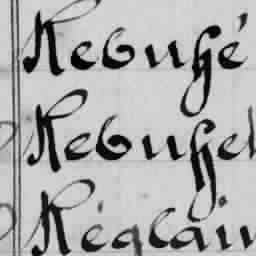 Rebuffé
Rebuffel
Réglain